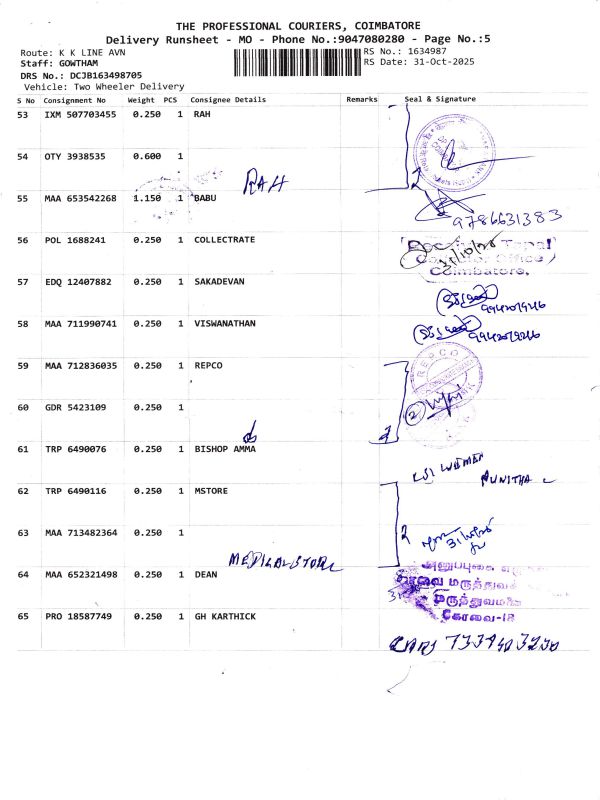 THE PROFESSIONAL COURIERS, COIMBATORE
Delivery Runsheet - MO - Phone No.:9047080280 - Page No.:5
Route: K K LINE AVN
RS No.: 1634987
Staff: GOWTHAM
RS Date: 31-Oct-2025
DRS No.: DCJB163498705
Vehicle: Two Wheeler Delivery
S No Consignment No Weight PCS Consignee Details Remarks Seal & Signature
53 IXM 507703455 0.250 1 RAH
54 OTY 3938535 0.600 1
RAH
2
55 MAA 653542268 1.150 1 BABU
9786631383
56 POL 1688241 0.250 1 COLLECTRATE
Tapal
31/10/25
Office
Coimbatore.
57 EDQ 12407882 0.250 1 SAKADEVAN
58 MAA 711990741 0.250 1 VISWANATHAN
59 MAA 712836035 0.250 1 REPCO
REPCO
60 GDR 5423109 0.250 1
2
61 TRP 6490076 0.250 1 BISHOP AMMA
PUNITHA
62 TRP 6490116 0.250 1 MSTORE
63 MAA 713482364 0.250 1
2
MEDICAL STORE
64 MAA 652321498 0.250 1 DEAN
கோவை மருத்துவக்
மருத்துவமனை
கோவை-18
65 PRO 18587749 0.250 1 GH KARTHICK